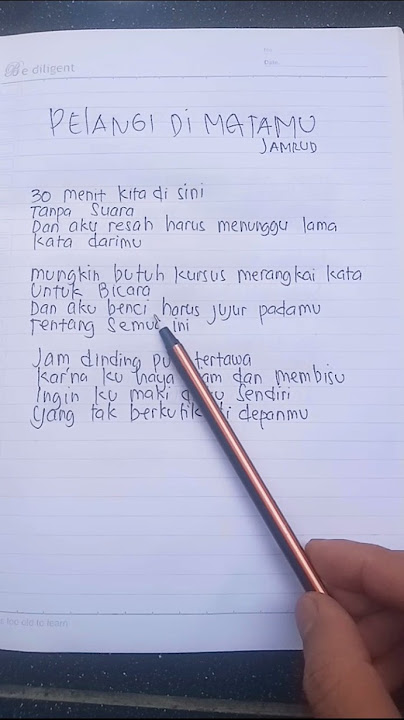 Be diligent
No
Date
PELANGI DI MATAMU
JAMRUD
30 menit kita di sini
Tanpa Suara
Dan aku resah harus menunggu lama
kata darimu
mungkin butuh kursus merangkai kata
Untuk Bicara
Dan aku benci harus jujur padamu
Tentang Semua ini
Jam dinding tertawa
kar'na ku dan membisu
Ingin ku maki Sendiri
Yang tak depanmu
too old to learn